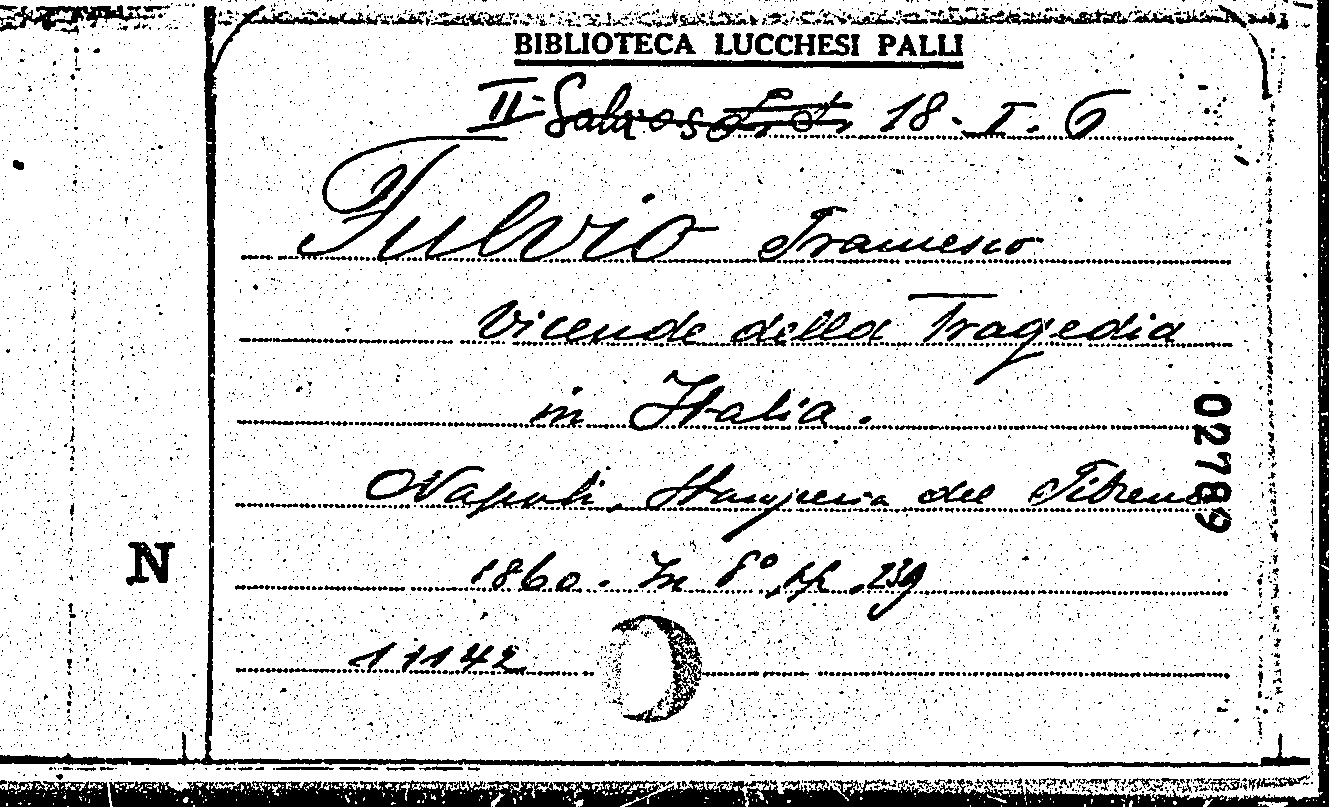 BIBLIOTECA LUCCHESI PALLI
II- 18- I. 6
Fulvio Francesco
Vicende della Tragedia
in Italia.
Napoli, Stamperia del Tibreno
1860. In 8° pp. 239
11142
N
02789